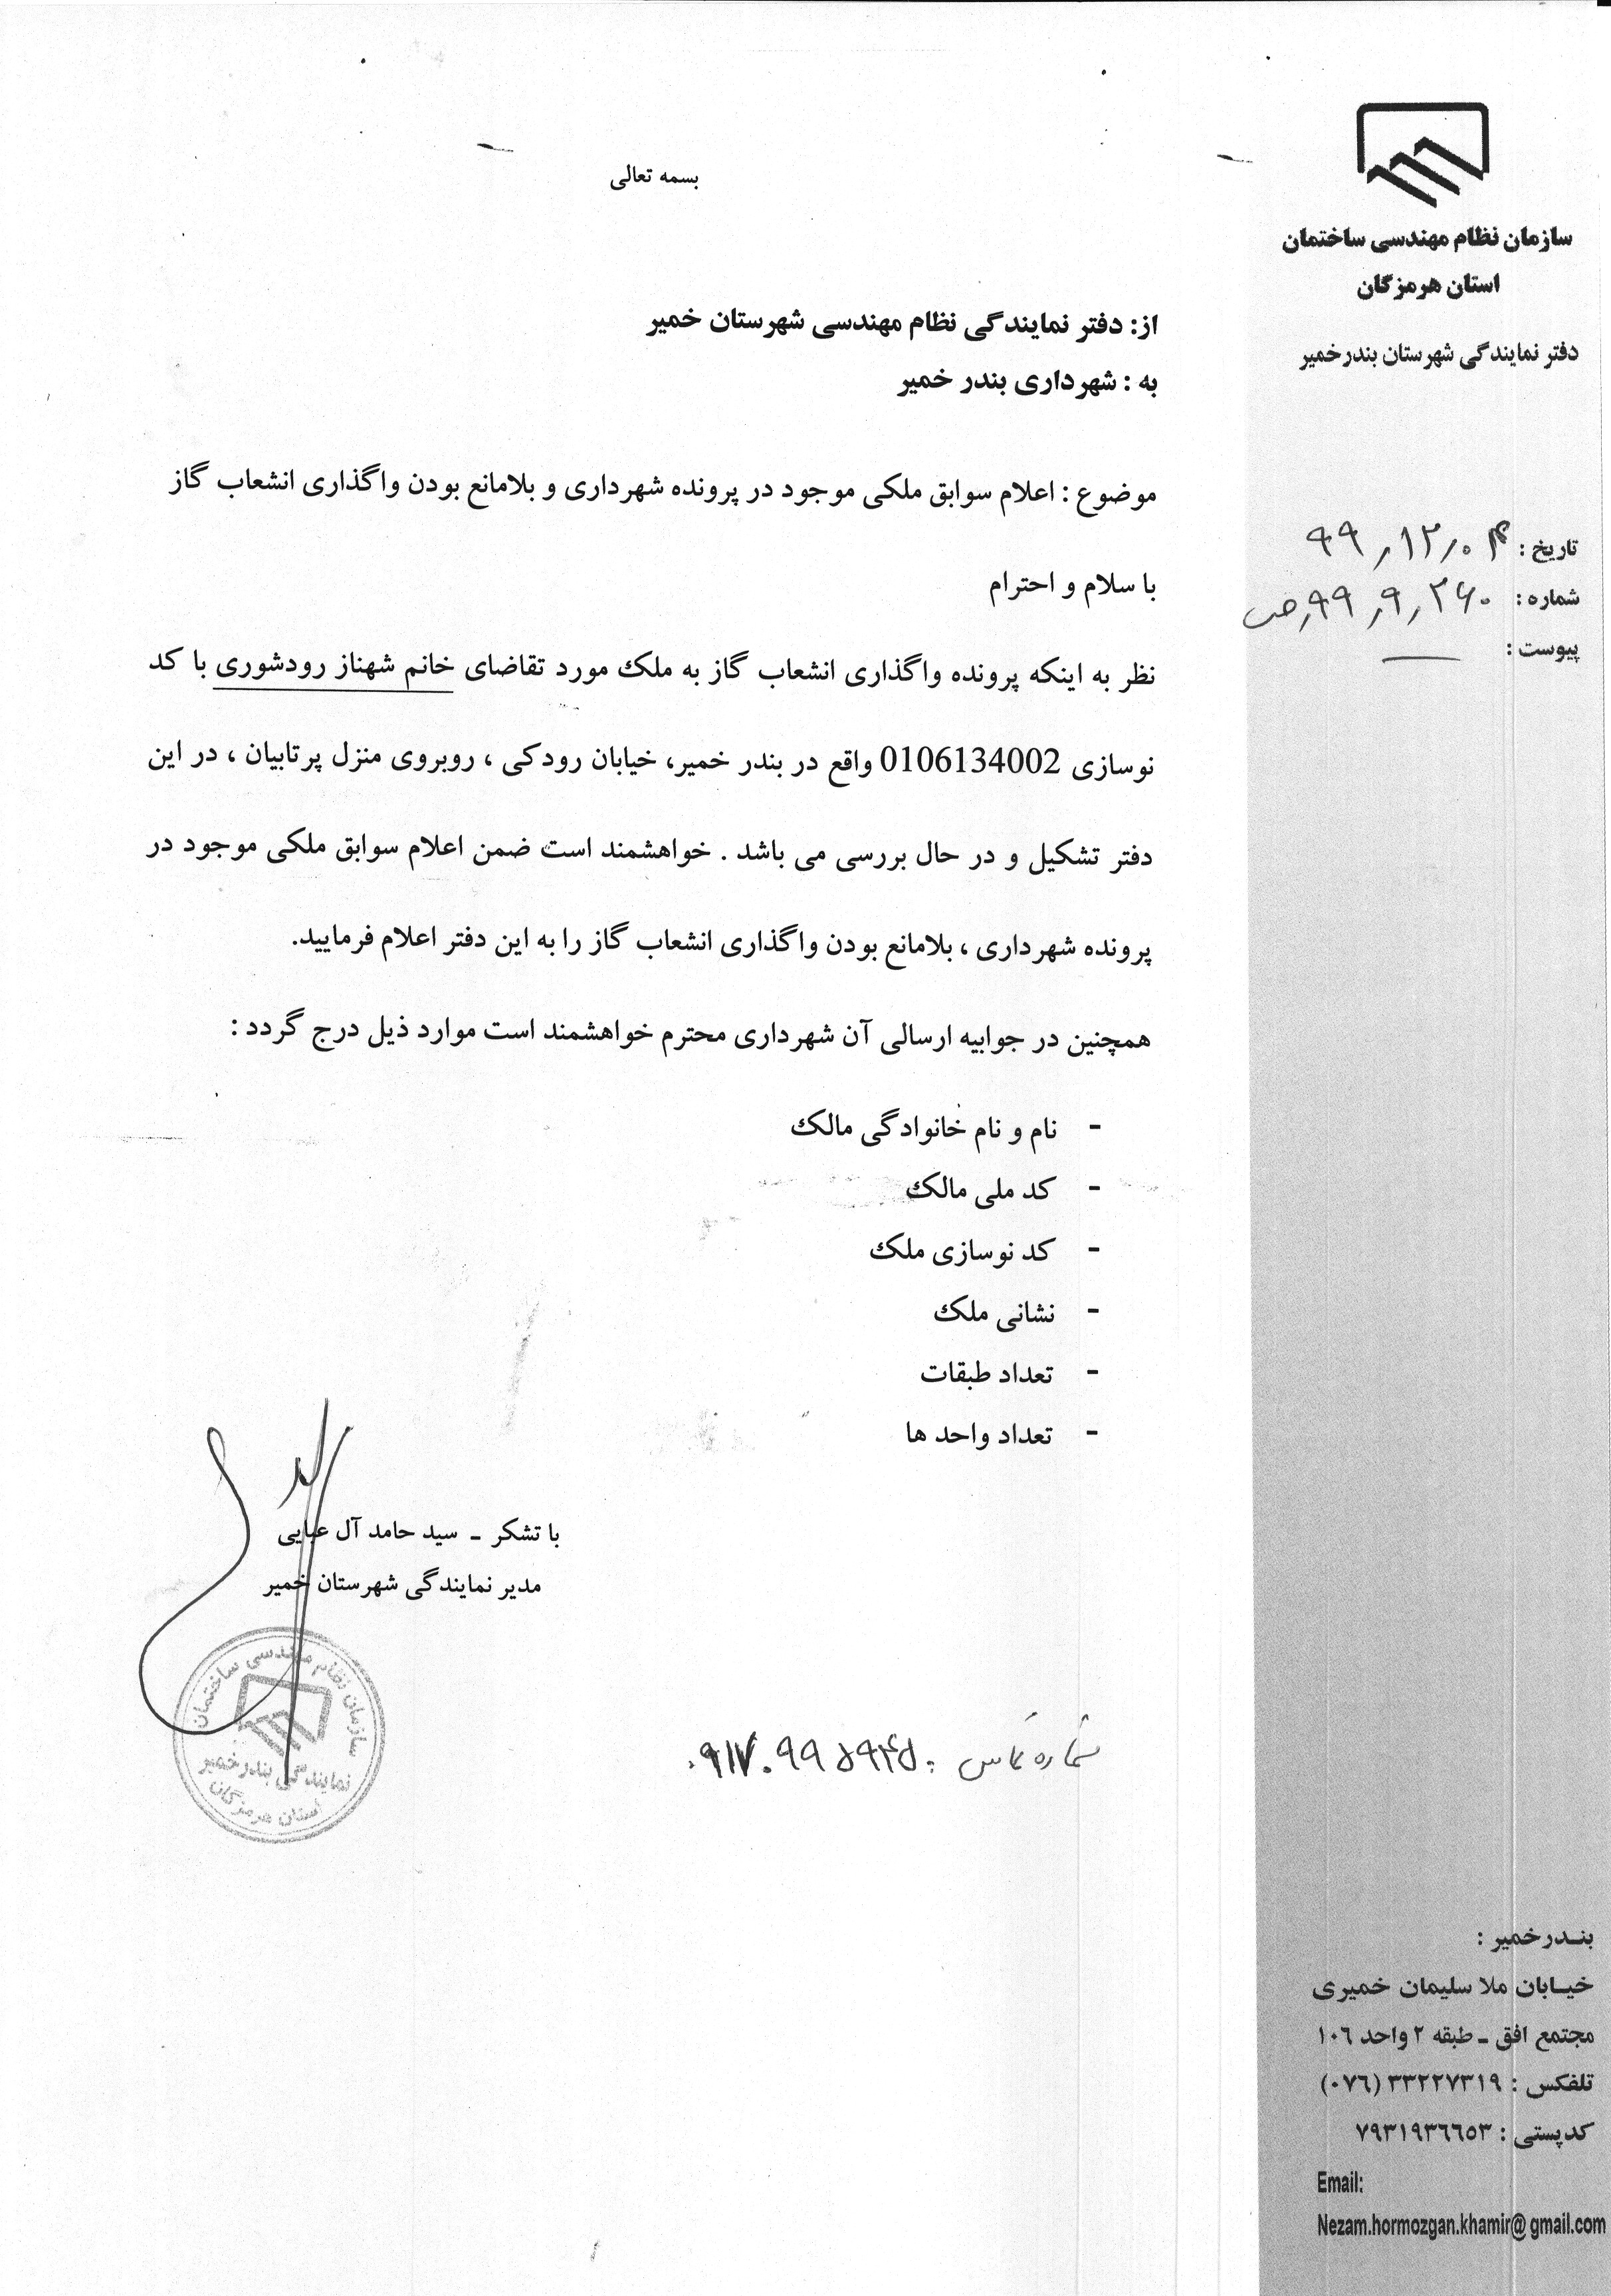 بسمه تعالی
سازمان نظام مهندسی ساختمان
استان هرمزگان
دفتر نمایندگی شهرستان بندرخمیر
تاریخ : ۹۹٫۱۲٫۰۴
شماره : ۲۶۰٫۹٫۹۹٫ص
پیوست : ـــ
از: دفتر نمایندگی نظام مهندسی شهرستان خمیر
به : شهرداری بندر خمیر
موضوع : اعلام سوابق ملکی موجود در پرونده شهرداری و بلامانع بودن واگذاری انشعاب گاز
با سلام و احترام
نظر به اینکه پرونده واگذاری انشعاب گاز به ملک مورد تقاضای خانم شهناز رودشوری با کد
نوسازی 0106134002 واقع در بندر خمیر، خیابان رودکی ، روبروی منزل پرتابیان ، در این
دفتر تشکیل و در حال بررسی می باشد . خواهشمند است ضمن اعلام سوابق ملکی موجود در
پرونده شهرداری ، بلامانع بودن واگذاری انشعاب گاز را به این دفتر اعلام فرمایید.
همچنین در جوابیه ارسالی آن شهرداری محترم خواهشمند است موارد ذیل درج گردد :
- نام و نام خانوادگی مالک
- کد ملی مالک
- کد نوسازی ملک
- نشانی ملک
- تعداد طبقات
- تعداد واحد ها
با تشکر ـ سید حامد آل عبایی
مدیر نمایندگی شهرستان خمیر
سازمان نظام مهندسی ساختمان
نمایندگی بندرخمیر
استان هرمزگان
شماره تماس : ۰۹۱۷۰۹۹۵۹۴۵
بنـدرخمیر :
خیـابان ملا سلیمان خمیری
مجتمع افق ـ طبقه ۲ واحد ۱۰۶
تلفکس : ۳۳۲۲۷۳۱۹ (۰۷۶)
کدپستی : ۷۹۳۱۹۳۶۶۵۳
Email:
Nezam.hormozgan.khamir@gmail.com